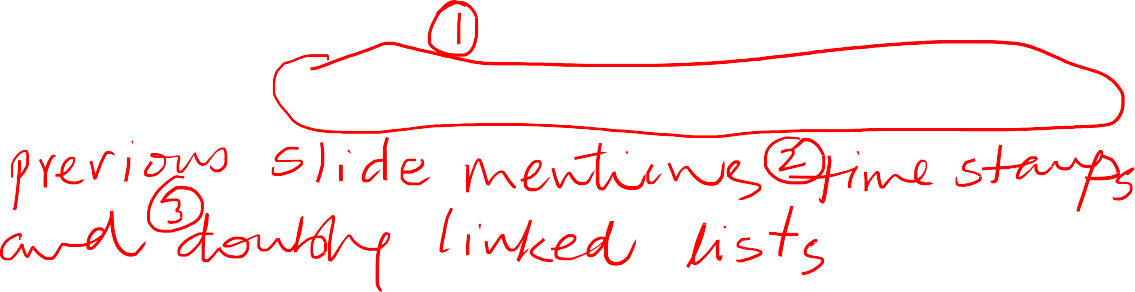 ①
previous slide mentions ② time stamps
and ③ doubly linked lists